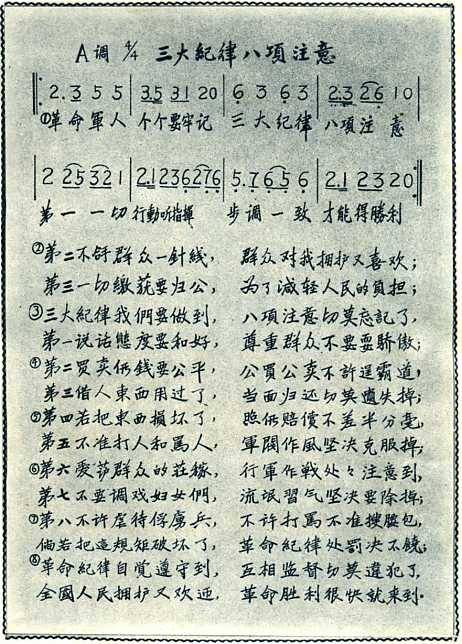 A调 4/4 三大紀律八項注意
2. 3 5 5 | 3.5 3 1 2 0 | 6 3 6 3 | 2.3 2 6 1 0 |
①革命軍人 个个要牢记 三大纪律 八項注意
2 2 5 3 2 1 | 2.1 2 3 6 2 7 6 | 5. 7 6 5 6 | 2. 1 2 3 2 0
第一一切 行動听指揮 步调一致 才能得勝利
②第二不舒群众一針綫, 群众对我拥护又喜欢;
第三一切繳获要归公, 为了减轻人民的負担;
③三大紀律我們要做到, 八項注意切莫忘記了,
第一说话態度要和好, 尊重群众不要耍骄傲;
④第二買卖価錢要公平, 公買公卖不許逞霸道,
第三借人東西用过了, 当面归还切莫遺失掉;
⑤第四若把東西損坏了, 照価賠償不差半分毫,
第五不准打人和罵人, 軍閥作風坚决克服掉;
⑥第六愛護群众的莊稼, 行軍作战处々注意到,
第七不要调戏妇女們, 流氓習气坚决要除掉;
⑦第八不许虐待俘虜兵, 不许打罵不准搜腰包,
倘若把這規矩破坏了, 革命紀律处罰决不饒;
⑧革命紀律自覚遵守到, 互相監督切莫違犯了,
全國人民拥护又欢迎, 革命勝利很快就来到.